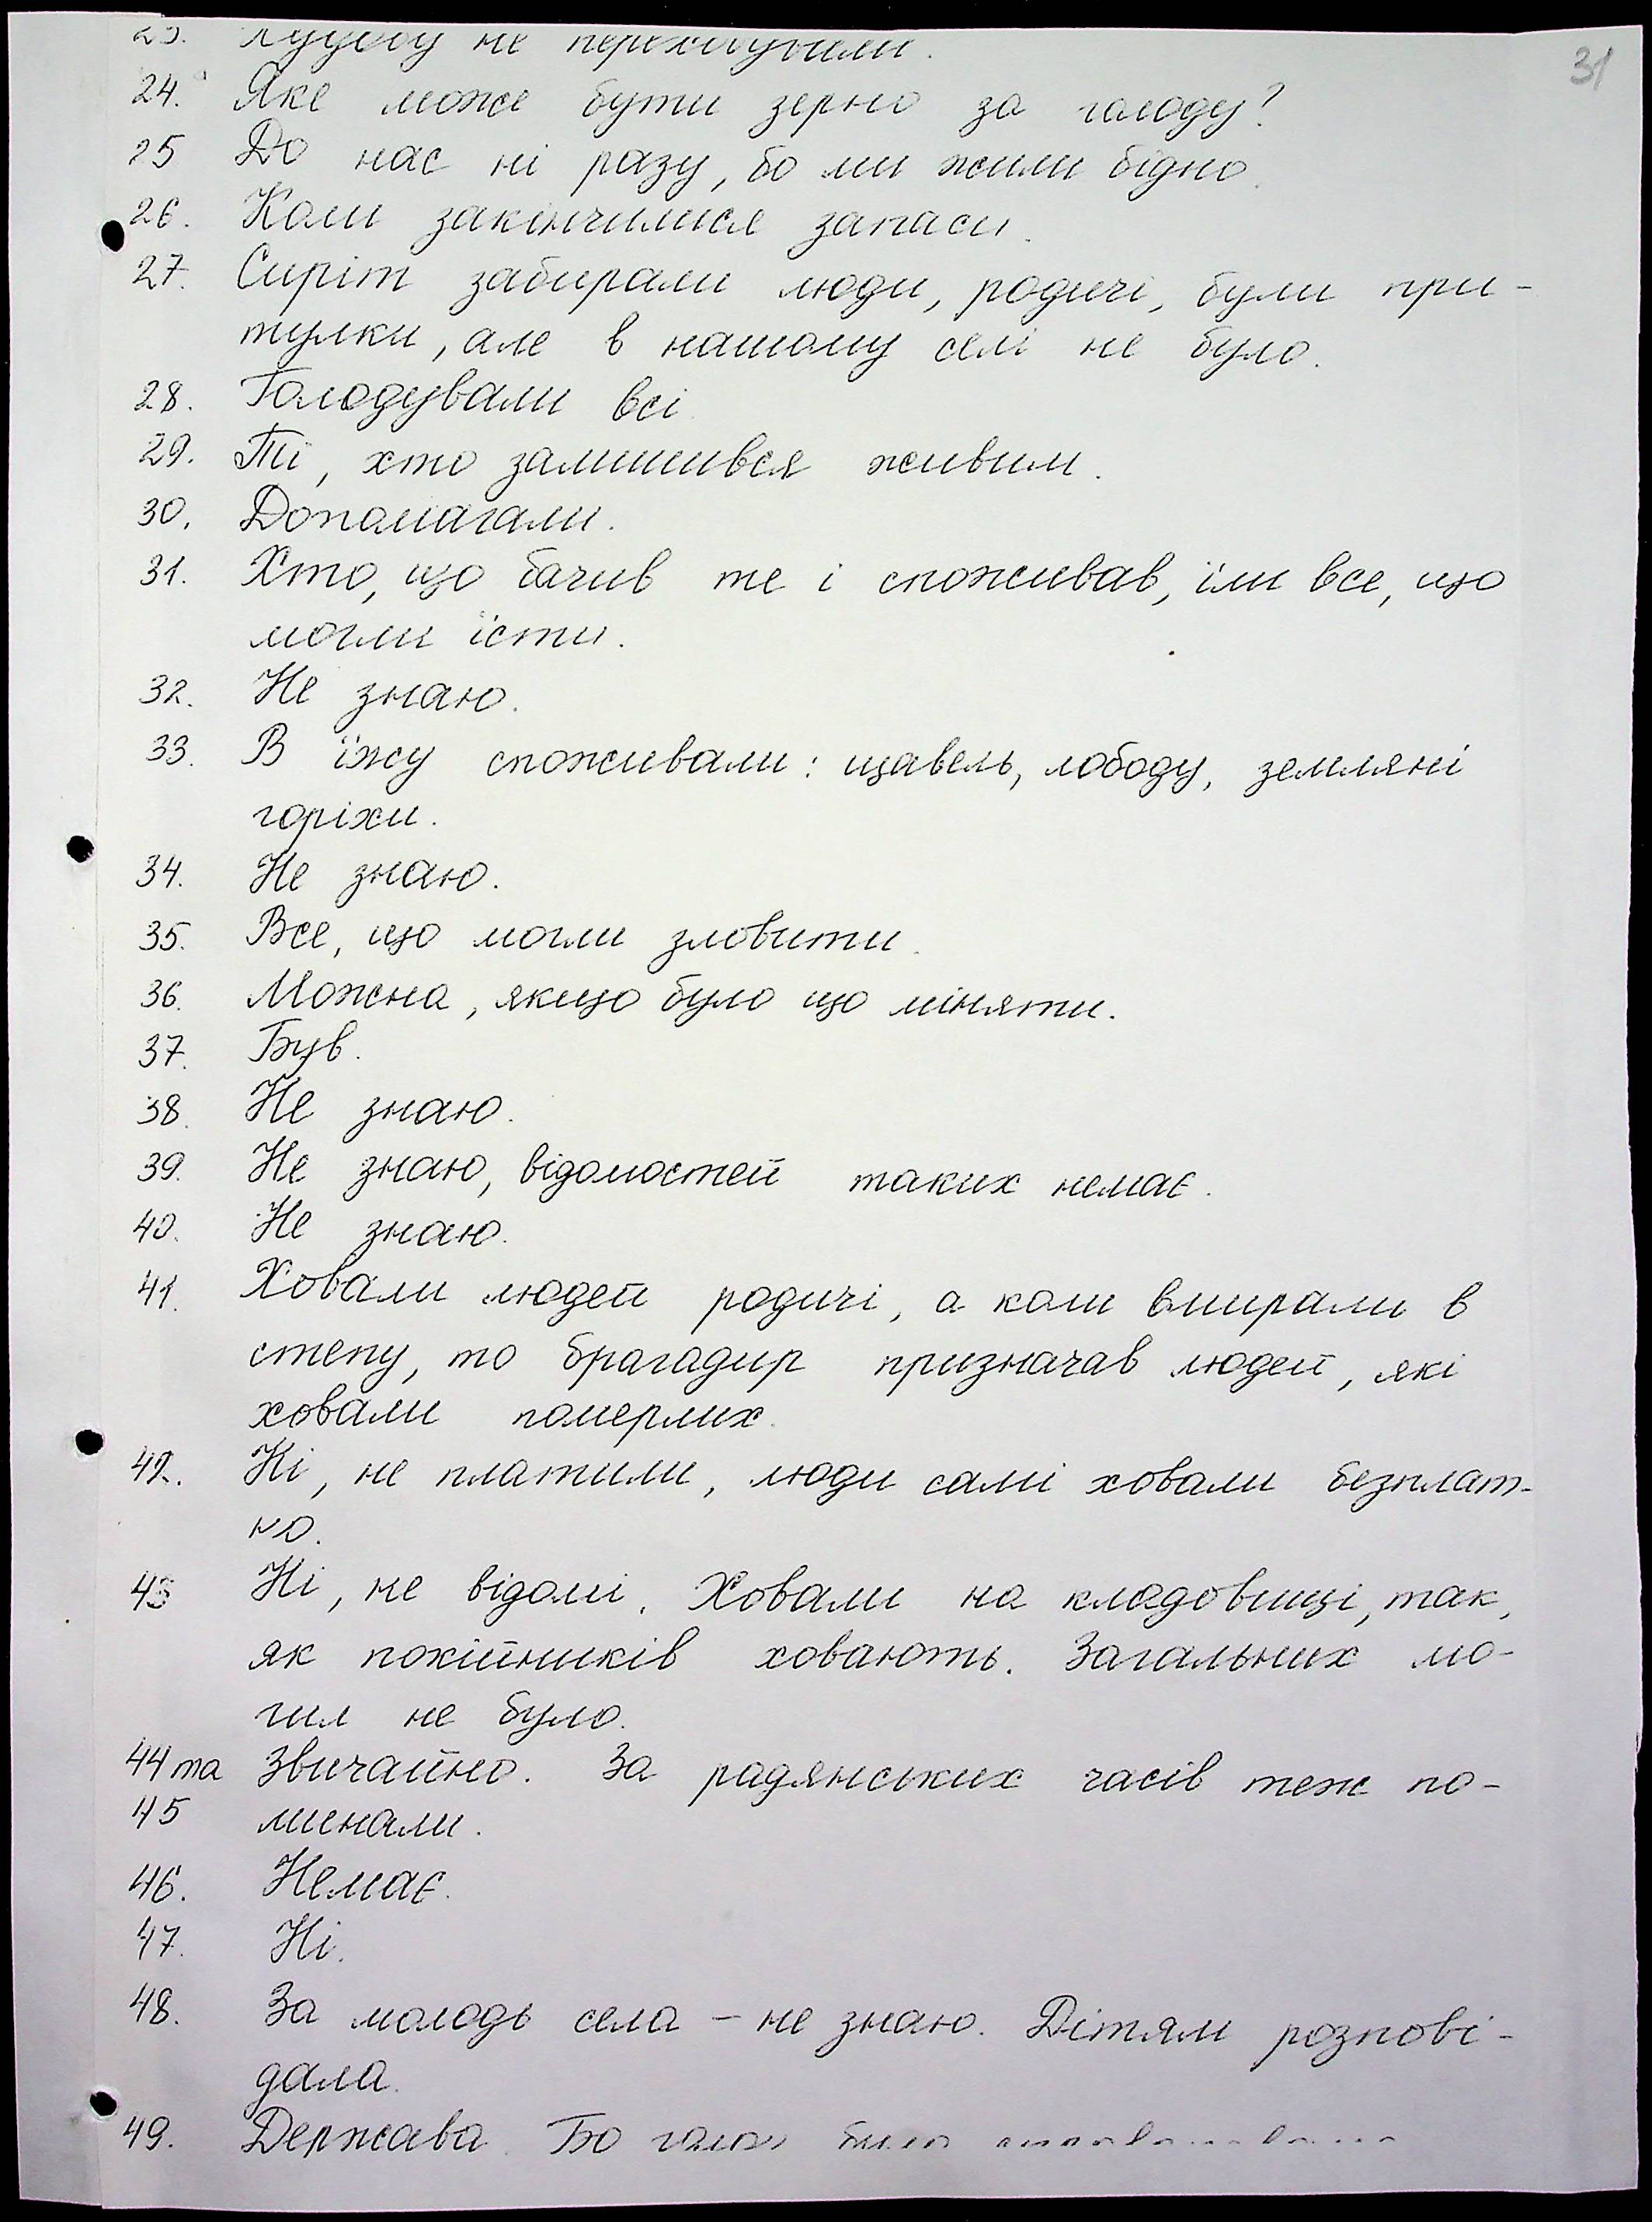 31
23. Худобу не переховували.
24. Яке може бути зерно за голоду?
25 До нас ні разу, бо ми жили бідно.
26. Коли закінчилися запаси.
27. Сиріт забирали люди, родичі, були при-
тулки, але в нашому селі не було.
28. Голодували всі.
29. Ті, хто залишився живим.
30. Допомагали.
31. Хто, що бачив те і споживав, їли все, що
могли їсти.
32. Не знаю.
33. В їжу споживали: щавель, лободу, земляні
горіхи.
34. Не знаю.
35. Все, що могли зловити.
36. Можна, якщо було що міняти.
37. Був.
38. Не знаю.
39. Не знаю, відомостей таких немає.
40. Не знаю.
41. Ховали людей родичі, а коли вмирали в
степу, то брагадир призначав людей, які
ховали померлих.
42. Ні, не платили, люди самі ховали безплат-
но.
43 Ні, не відомі. Ховали на кладовищі, так,
як покійників ховають. Загальних мо-
гил не було.
44 та Звичайно. За радянських часів теж по-
45 минали.
46. Немає.
47. Ні.
48. За молодь села – не знаю. Дітям розпові-
дала.
49. Держава. Бо голод було